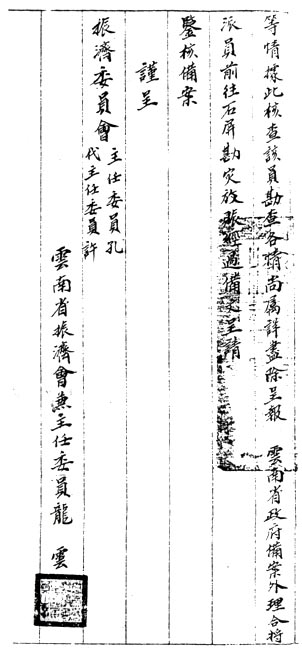 等情據此核查該員勘查各情尚屬詳盡除呈報 雲南省政府備案外理合將
派員前往石屏勘災放賑經過備文呈請
鑒核備案
謹呈
振濟委員會 主任委員孔
代主任委員許
雲南省振濟會兼主任委員龍 雲